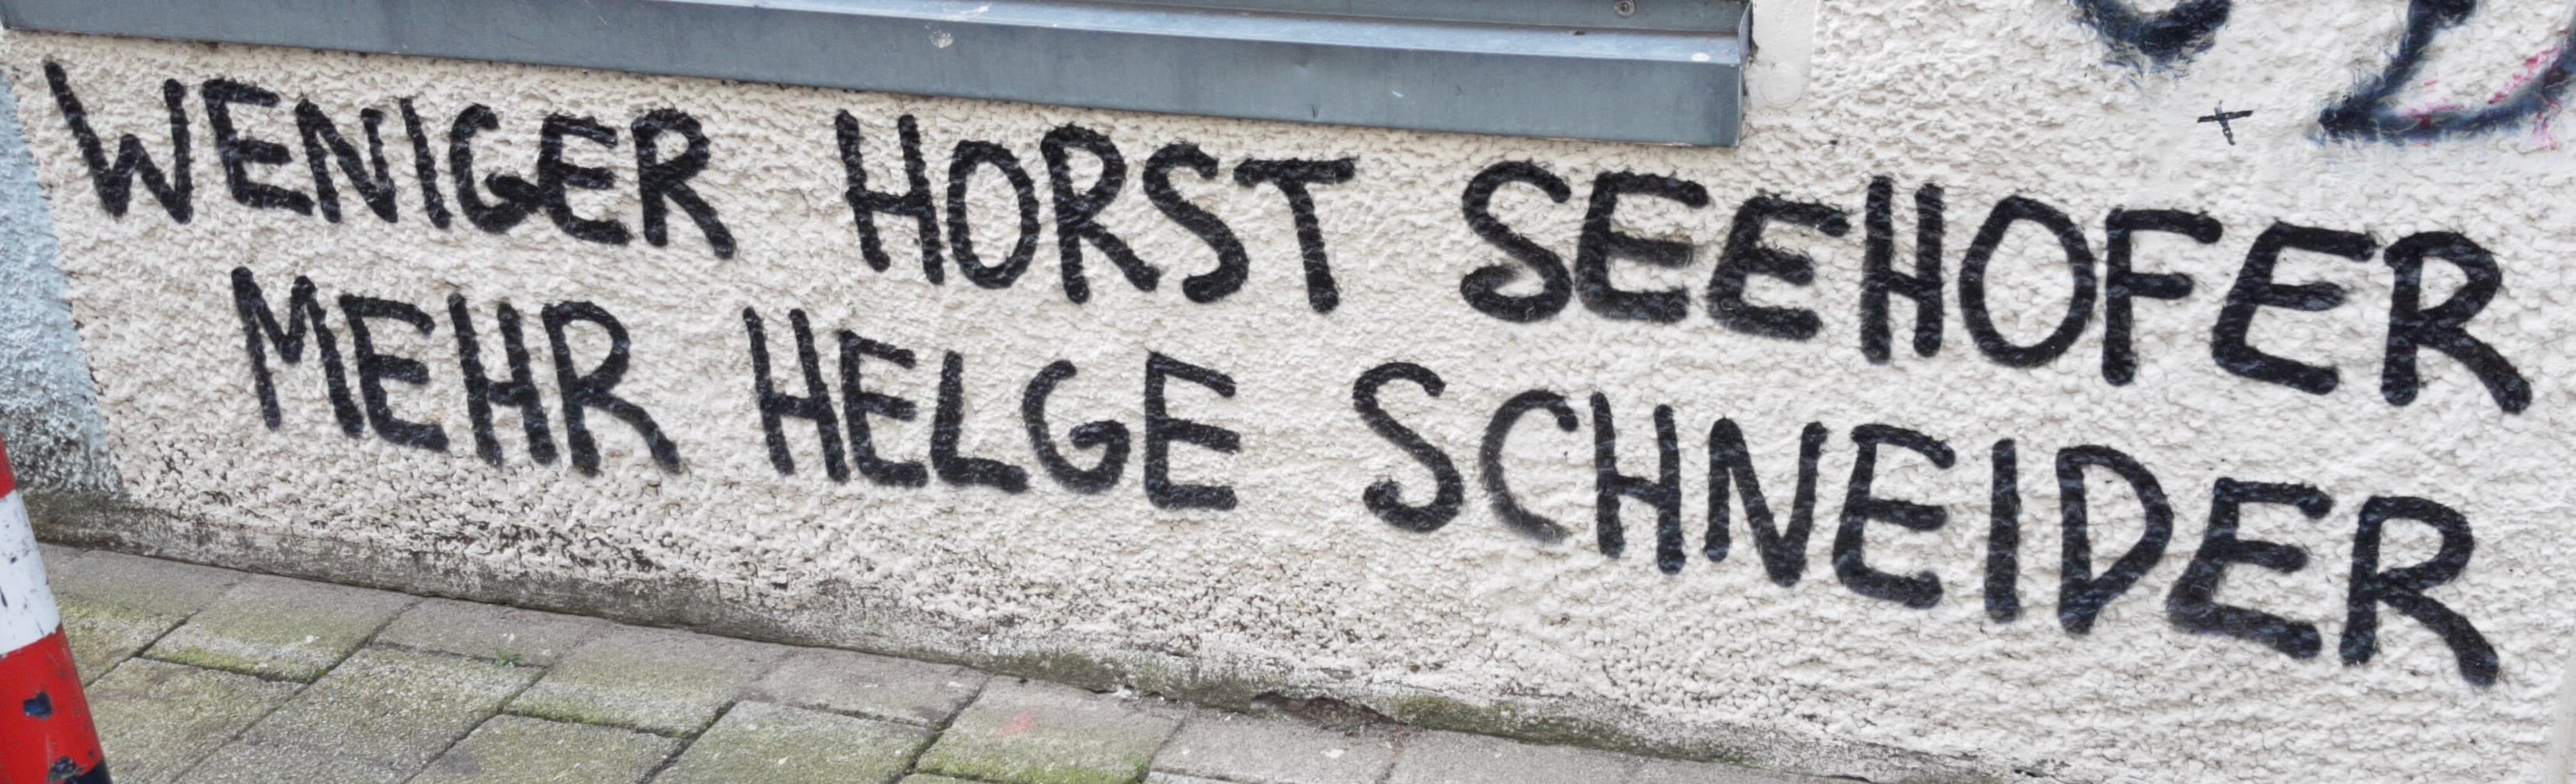 WENIGER HORST SEEHOFER
MEHR HELGE SCHNEIDER